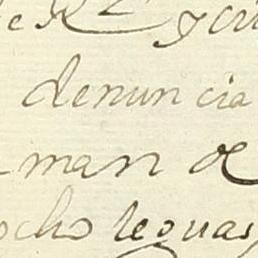 denuncia
man de
ocho leguas